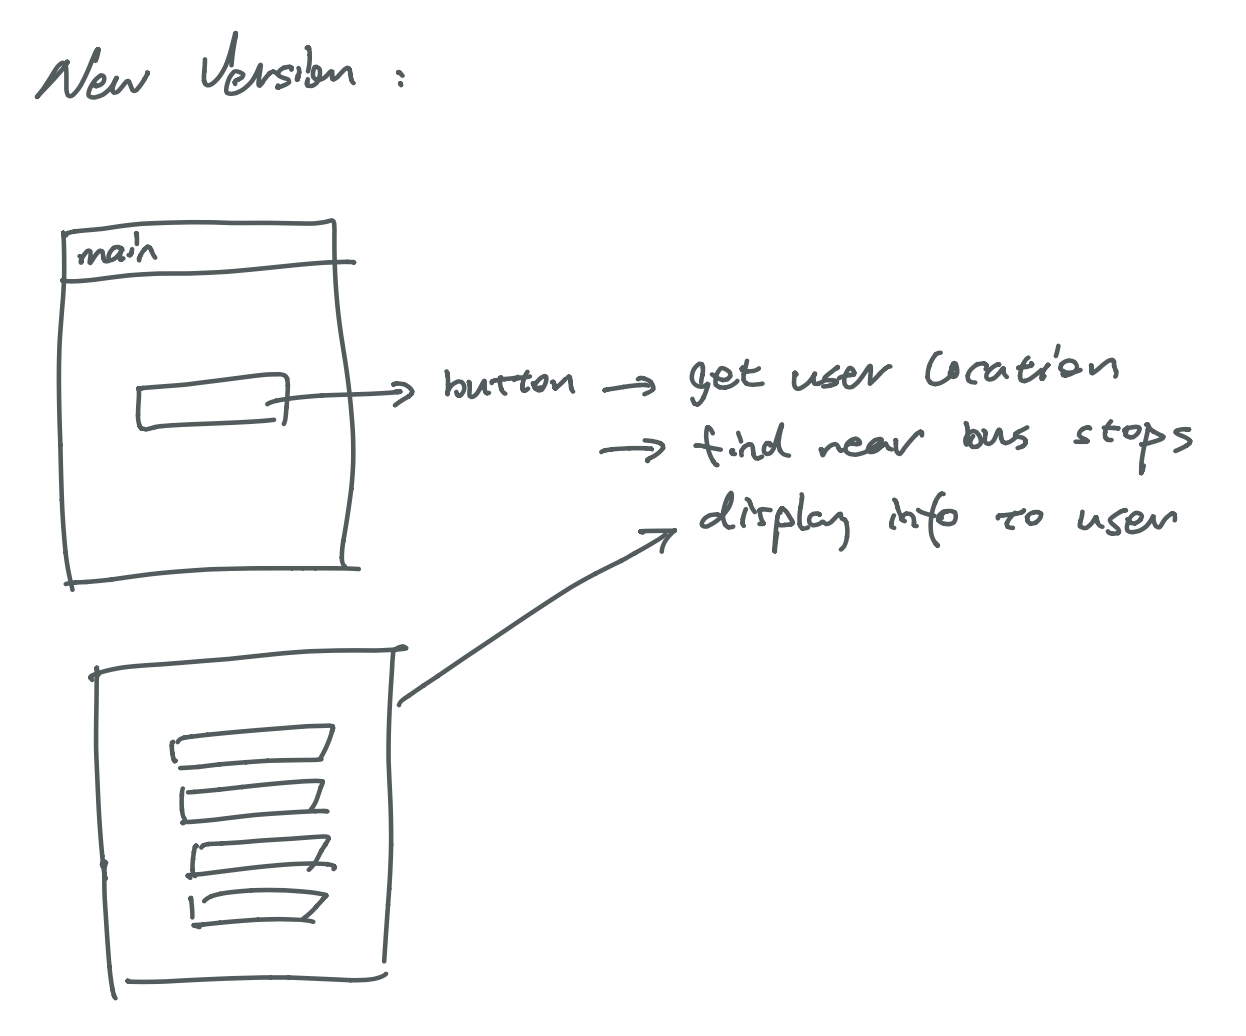 New Version :
main
button → get user location
→ find near bus stops
display info to user